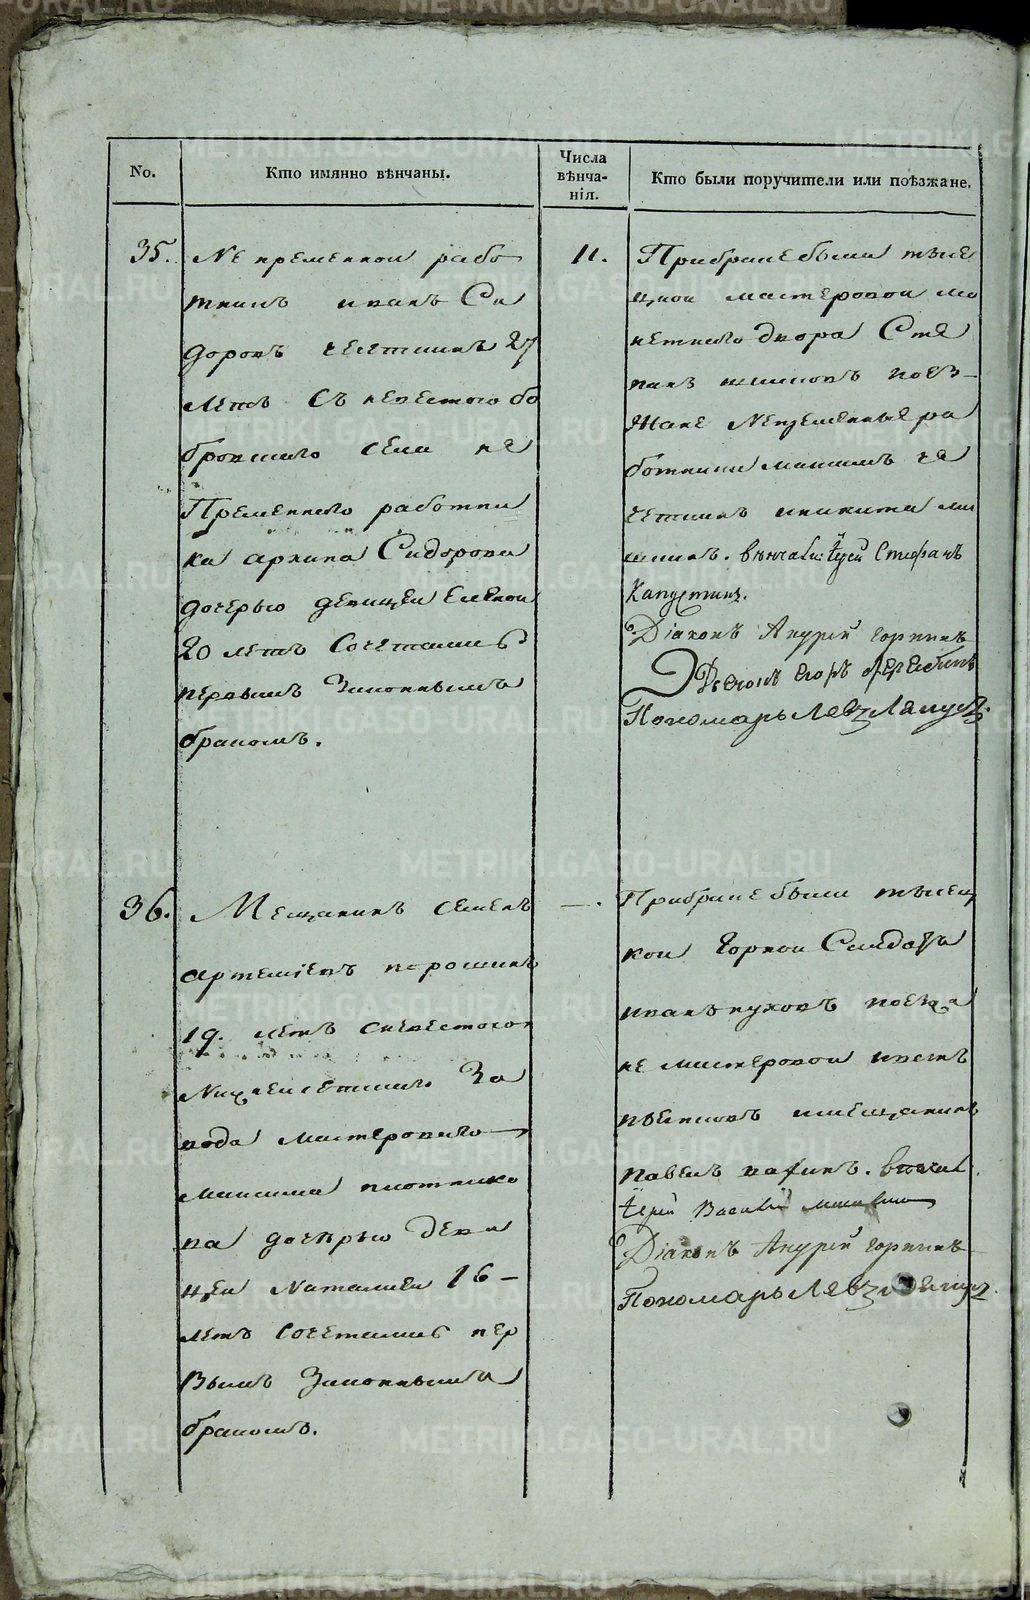 No.
Кто имянно вѣнчаны.
Числа
вѣнча-
нія.
Кто были поручители или поѣзжане.
35.
Непременной рабо
тникъ иванъ Си
доровъ 27
летъ Съ невестою бо
бровскаго села не
Пременнаго работни
ка архипа Сидорова
дочерью девицей еленой
20 летъ Сочетались
первымъ Законнымъ
бракомъ.
11.
Прибраке были тысе
цкой мастеровой мо
нетнаго двора Сте
панъ поез-
жане Непременные ра
ботники максимъ че
иникита
вѣнчалъ: Іерей Стефанъ
Капустинъ.
Діаконъ Андрей горнихъ
Дьячокъ егоръ
Пономарь Левъ Ляпустинъ.
36.
Мещанинъ семенъ
артемиевъ порошинъ
19. летъ сневестою
За
вода мастероваго
Максима плотнико
ва дочерью деви
цей Наталией 16-
летъ Сочетались пер
вымъ Законнымъ
бракомъ.
—.
Прибраке были тысец
кой Горной Солдатъ
иванъ пуховъ поезжа
не мастеровой
имещанинъ
павелъ вѣнчалъ
Іерей Василій
Діаконъ Андрей горнихъ
Пономарь Левъ
METRIKI.GASO-URAL.RU